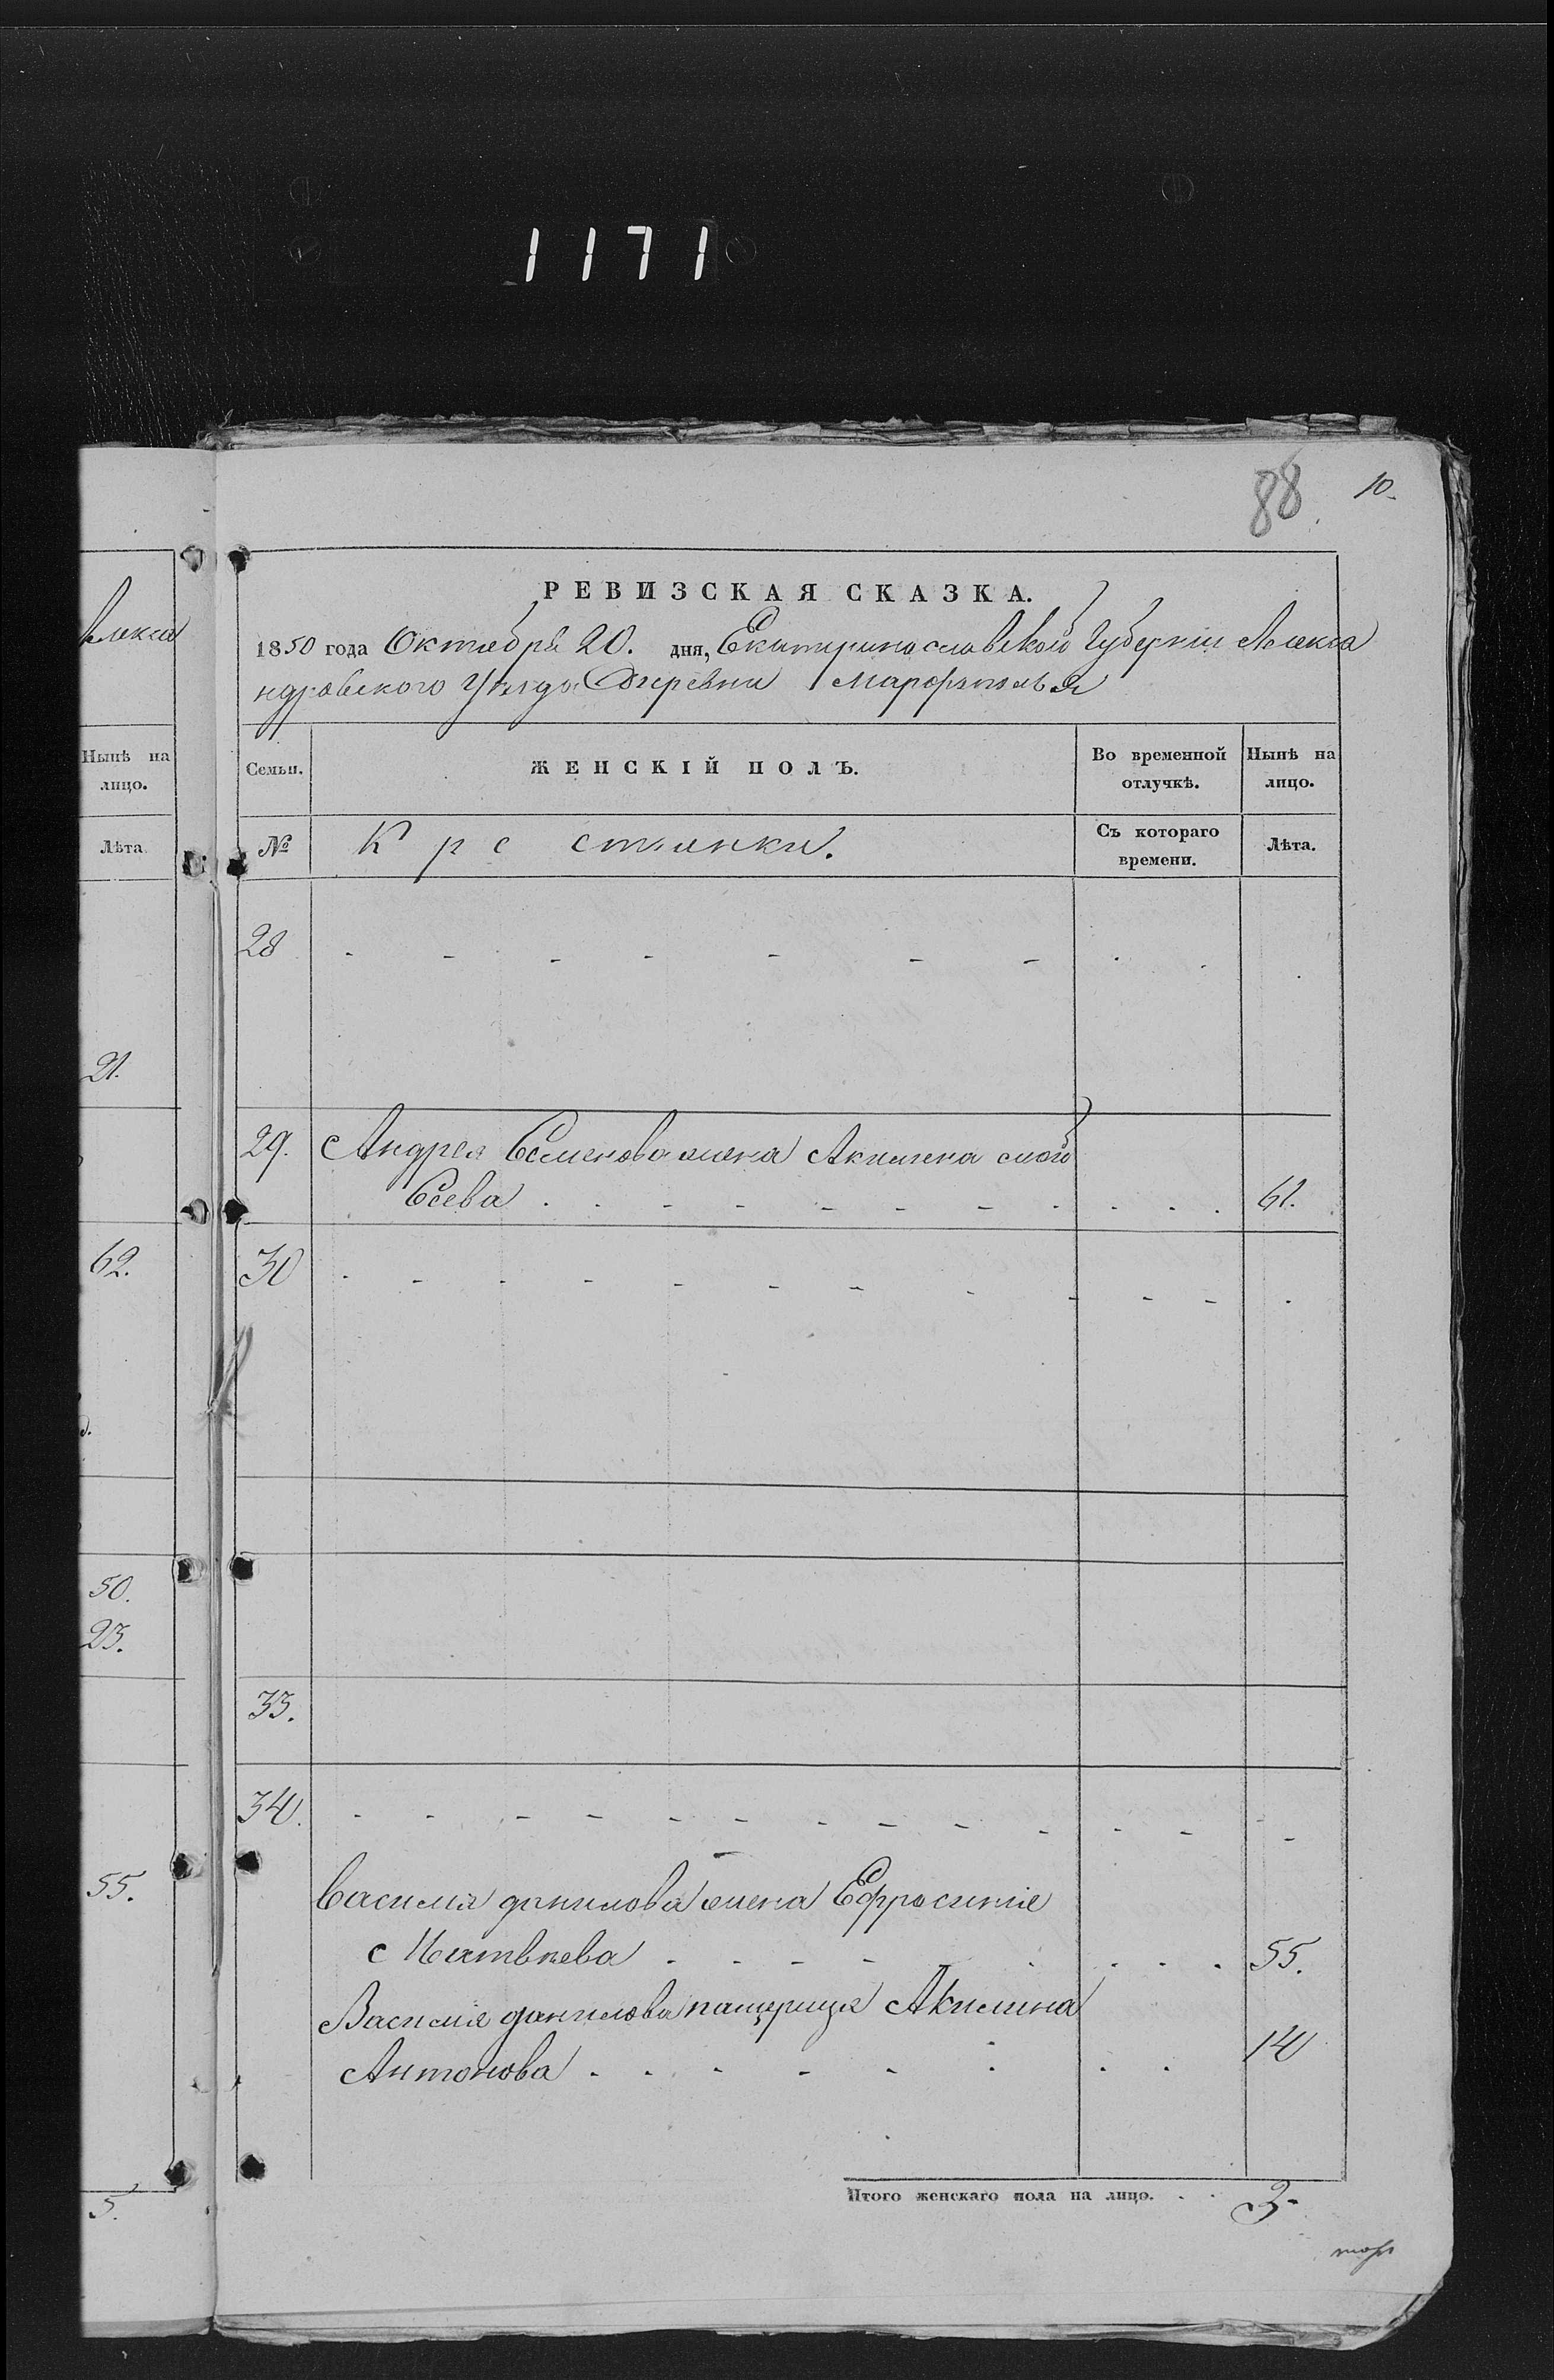 1171
88
10.
РЕВИЗСКАЯ СКАЗКА.
1850 года Октября 20. дня, Екатеринославской Губернии Алекса
ндровского Уѣзда Деревни Марфополья
Нынѣ на
лицо.
Лѣта
21.
62.
50.
23.
55.
5.
Семьи. ЖЕНСКІЙ ПОЛЪ. Во временной отлучкѣ. Нынѣ на лицо.
№ Крестьянки. Съ котораго времени. Лѣта.
28
29. Андрея Семенова жена Акилина
Сеева 61.
30
33.
34.
Василия данилова жена Ефросиния
Матвѣева 55.
Василия данилова пащерица Акилина
Антонова 14
Итого женскаго пола на лицо. 3